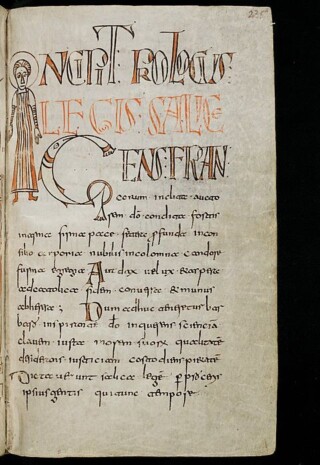 INCIPIT PROLOGUS
LEGIS SALICE
GENS FRAN
corum inclita aucto
rem dō condita fortis
in arma firma pace
silio corporea nobilis incolomna candore
forma egregia Autdax uelux et aspera
ad catholica fidem conuersa emunis
ab heresa; Dum adhuc teneretur bar
bara inspirante dō inquerens sciencia
clauem iuxta morem suorum qualitate
desiderans iusticiam costodiens pietate
Dictauerunt salica lege
ipsius gentis qui tunc tempore